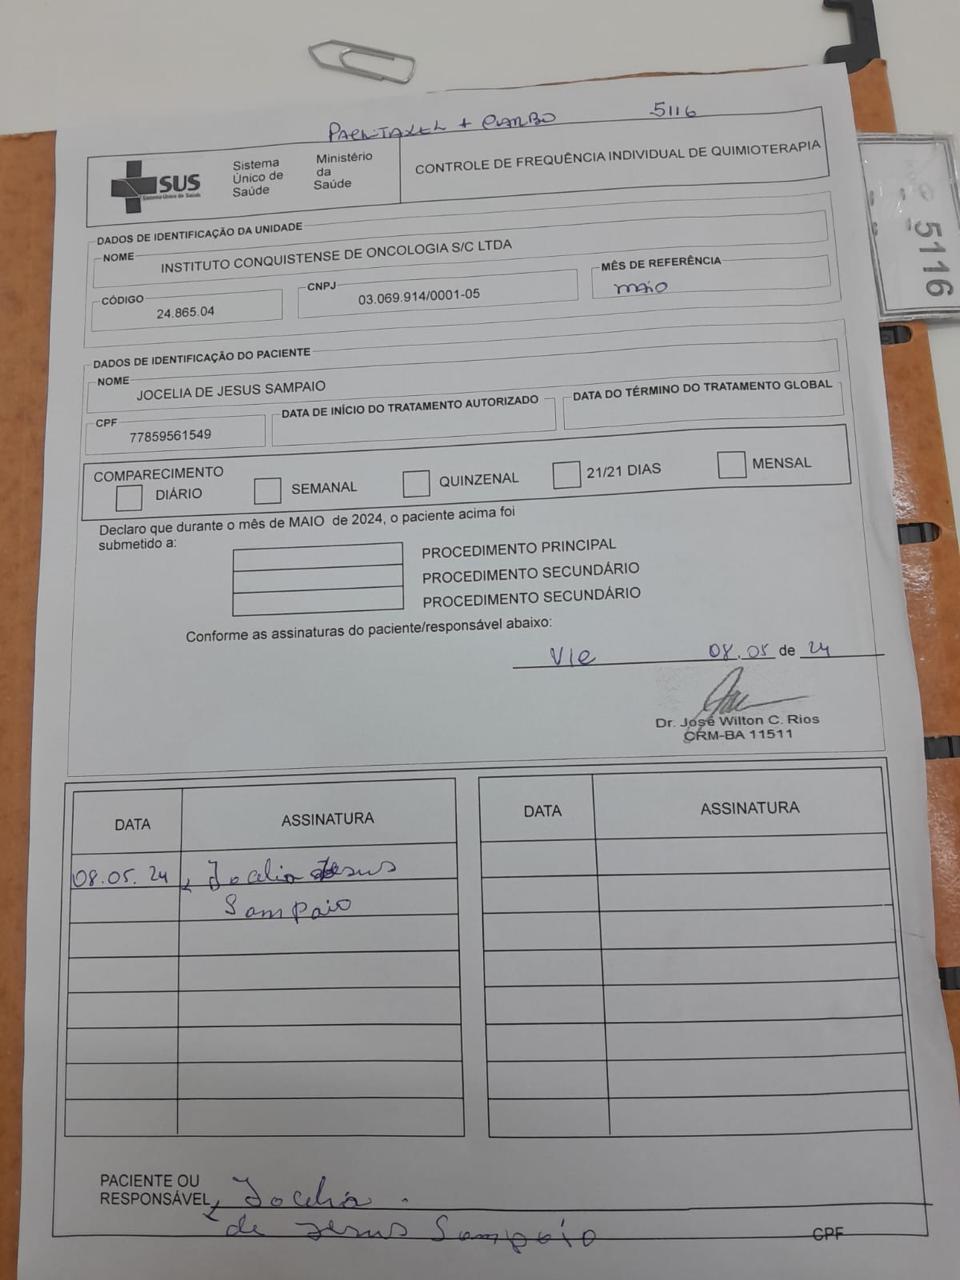 PACLITAXEL + CARBO 5116
SUS
Sistema Único de Saúde
Sistema
Único de
Saúde
Ministério
da
Saúde
CONTROLE DE FREQUÊNCIA INDIVIDUAL DE QUIMIOTERAPIA
5116
DADOS DE IDENTIFICAÇÃO DA UNIDADE
NOME
INSTITUTO CONQUISTENSE DE ONCOLOGIA S/C LTDA
CÓDIGO
24.865.04
CNPJ
03.069.914/0001-05
MÊS DE REFERÊNCIA
maio
DADOS DE IDENTIFICAÇÃO DO PACIENTE
NOME
JOCELIA DE JESUS SAMPAIO
CPF
77859561549
DATA DE INÍCIO DO TRATAMENTO AUTORIZADO
DATA DO TÉRMINO DO TRATAMENTO GLOBAL
COMPARECIMENTO
DIÁRIO SEMANAL QUINZENAL 21/21 DIAS MENSAL
Declaro que durante o mês de MAIO de 2024, o paciente acima foi
submetido a:
PROCEDIMENTO PRINCIPAL
PROCEDIMENTO SECUNDÁRIO
PROCEDIMENTO SECUNDÁRIO
Conforme as assinaturas do paciente/responsável abaixo:
08.05 de 24
Dr. José Wilton C. Rios
CRM-BA 11511
DATA ASSINATURA DATA ASSINATURA
08.05.24 Jocelia Jesus
Sampaio
PACIENTE OU
RESPONSÁVEL Jocelia
de Jesus Sampaio
CPF